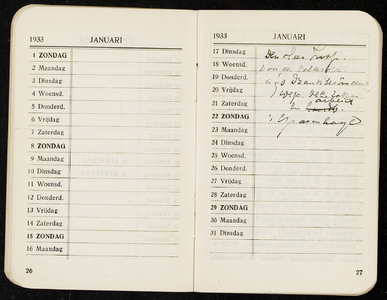 1933 JANUARI
1 ZONDAG
2 Maandag
3 Dinsdag
4 Woensd.
5 Donderd.
6 Vrijdag
7 Zaterdag
8 ZONDAG
9 Maandag
10 Dinsdag
11 Woensd.
12 Donderd.
13 Vrijdag
14 Zaterdag
15 ZONDAG
16 Maandag
26
1933 JANUARI
17 Dinsdag
18 Woensd.
19 Donderd.
20 Vrijdag
21 Zaterdag
22 ZONDAG
23 Maandag
24 Dinsdag
25 Woensd.
26 Donderd.
27 Vrijdag
28 Zaterdag
29 ZONDAG
30 Maandag
31 Dinsdag
27